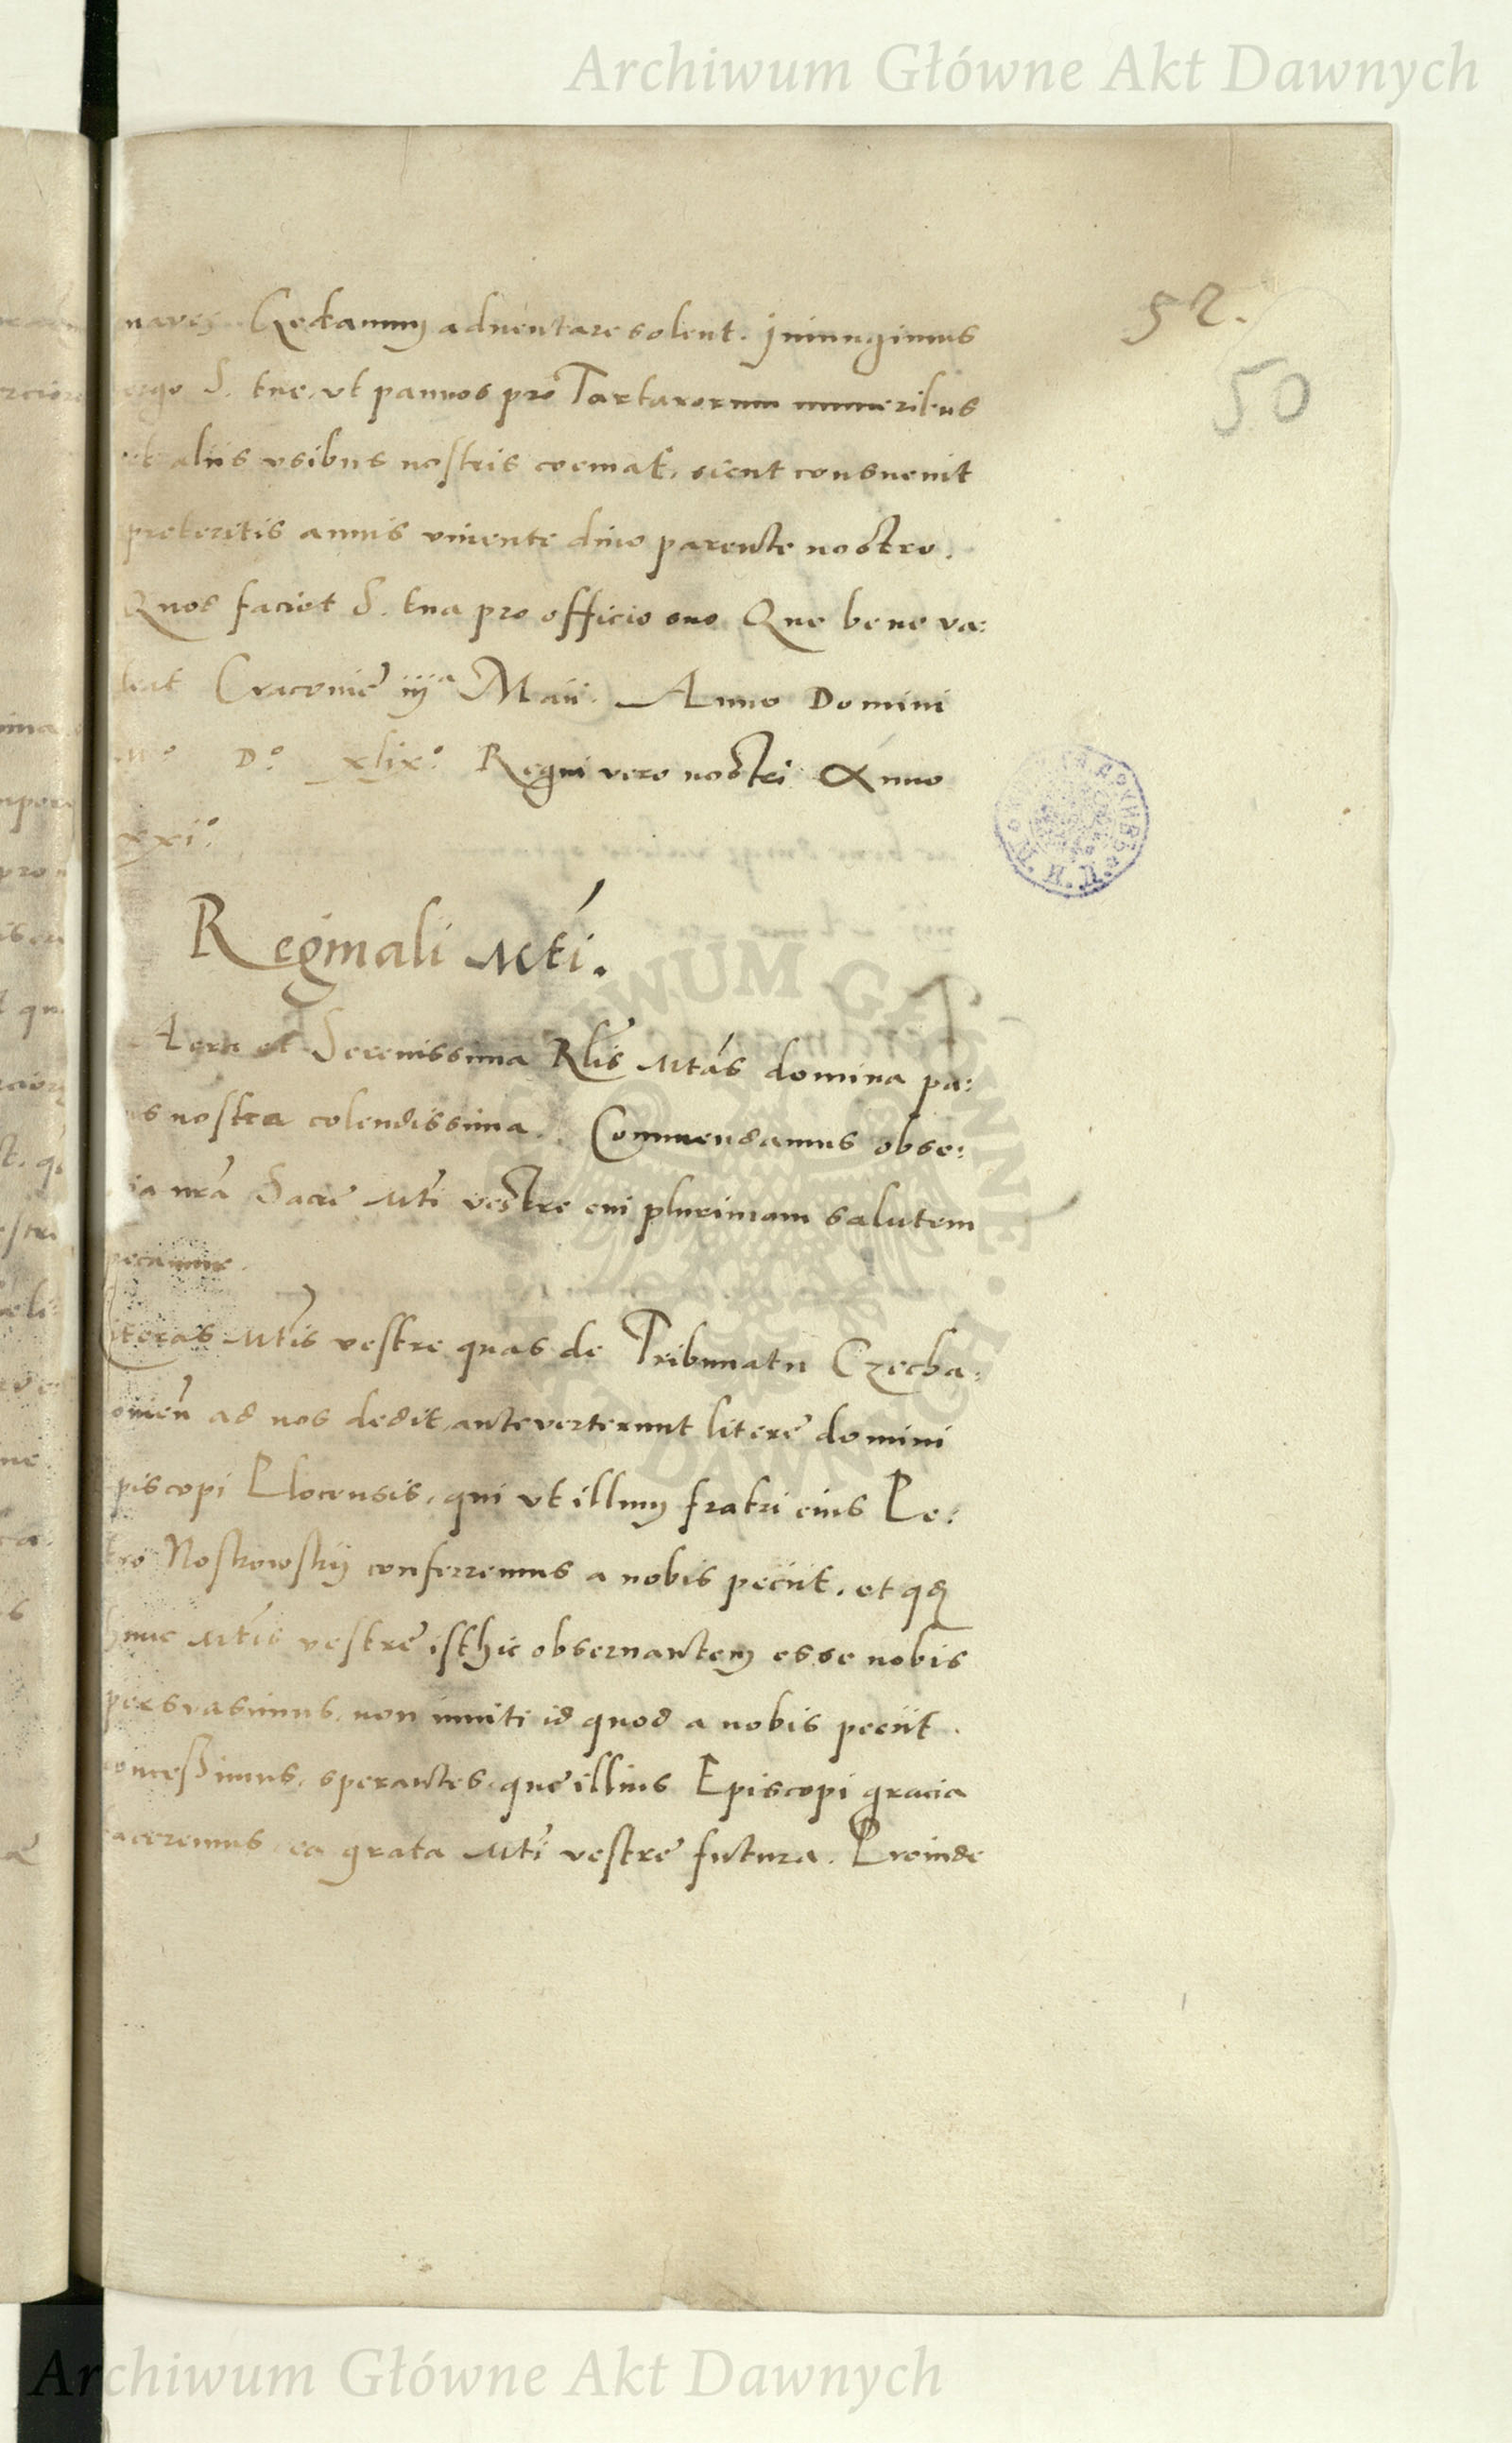 Archiwum Główne Akt Dawnych
52.
50
naves Gedanum adventare solent. Iniungimus
ergo S. tue, ut pannos pro Tartarorum muneribus
et aliis usibus nostris coemat, sicut consuevit
preteritis annis vivente divo parente nostro.
Quos faciet S. tua pro officio suo Que bene va:
leat Cracovie iijª Maii. Anno Domini
Mº Dº xlixº Regni vero nostri Anno
xxiº.
Reginali Mti.
Sacra et Serenissima Rlis Mtas domina pa:
nostra colendissima. Commendamus obse:
nra Sacre Mti vestre cui plurimam salutem
precamur.
Literas Mtis vestre quas de Tribunatu Czecha:
novien ad nos dedit, anteverterunt litere domini
Episcopi Plocensis, qui ut illum fratri eius Pe:
tro Noskowskij conferremus a nobis peciit, et qd
hunc Mtis vestre isthic observantem esse nobis
persvasimus, non inviti id quod a nobis peciit.
concessimus, sperantes, que illius Episcopi gracia
faceremus, ea grata Mti vestre futura. Proinde
Archiwum Główne Akt Dawnych